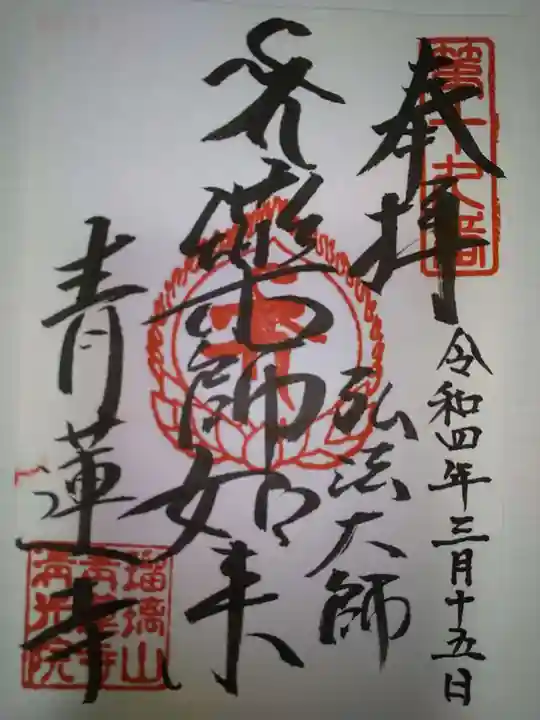 奉拝
第十九番
令和四年三月十五日
弘法大師
薬師如来
青蓮寺
瑠璃山
青蓮寺